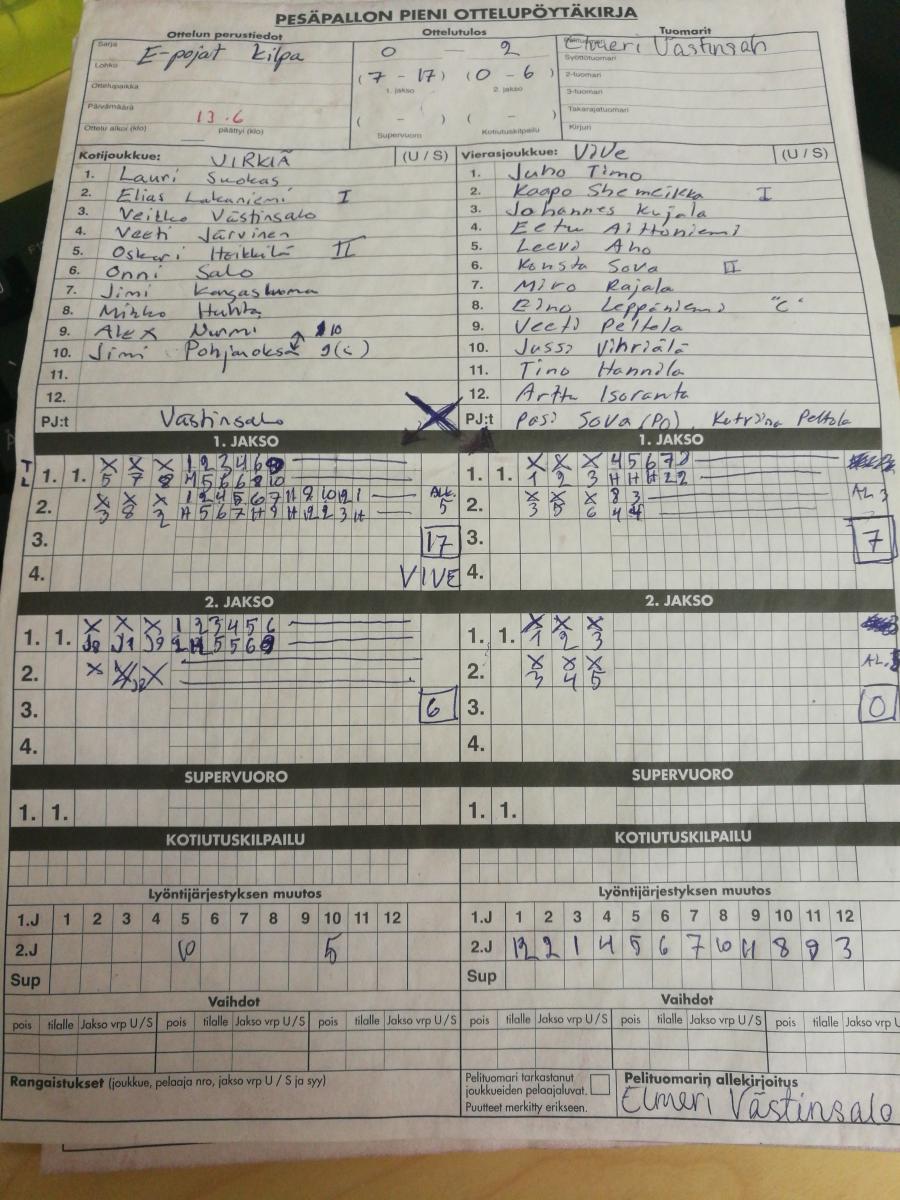 PESÄPALLON PIENI OTTELUPÖYTÄKIRJA
Ottelun perustiedot Ottelutulos Tuomarit
Sarja E-pojat kilpa 0 — 2 Elmeri Västinsalo
Lohko Syöttötuomari
Ottelupaikka (7 - 17) (0 - 6) 2-tuomari
1. jakso 2. jakso 3-tuomari
Päivämäärä 13.6 Takarajatuomari
Ottelu alkoi (klo) päättyi (klo) ( - ) ( - ) Kirjuri
Supervuoro Kotiutuskilpailu
Kotijoukkue: VIRKIÄ (U / S) Vierasjoukkue: ViVe (U / S)
1. Lauri Suokas 1. Juho Timo
2. Elias Lakaniemi I 2. Kaapo Shemeikka I
3. Veikko Västinsalo 3. Johannes Kujala
4. Veeti Järvinen 4. Eetu Aittoniemi
5. Oskari Heikkilä II 5. Leevi Aho
6. Onni Salo 6. Konsta Sova II
7. Jimi Kangasluoma 7. Miro Rajala
8. Mikko Huhta 8. Eino Leppäniemi "C"
9. Alex Nurmi 10 9. Veeti Peltola
10. Jimi Pohjaroksa 9(c) 10. Jussi Vihriälä
11. 11. Tino Hannila
12. 12. Arttu Isoranta
PJ:t Västinsalo X PJ:t Pasi Sova (PJ), Katriina Peltola
1. JAKSO 1. JAKSO
1. 1. X X X 1 2 3 4 6 1. 1. X X X 4 5 6 7
5 7 8 H 5 6 6 8 10 1 2 3 H H H 2 2
2. X X X 1 2 4 5 6 7 11 8 10 12 1 5 2. X X X 8 3 AL 3
3 8 2 H 5 6 7 H 9 H 12 2 3 H 3 5 6 4 4
3. 17 3. 7
4. VIVE 4.
2. JAKSO 2. JAKSO
1. 1. X X X 1 2 3 4 5 6 1. 1. X X X
1 2 3
2. X 2. X X X AL.
3 4 5
3. 6 3. 0
4. 4.
SUPERVUORO SUPERVUORO
1. 1. 1. 1.
KOTIUTUSKILPAILU KOTIUTUSKILPAILU
Lyöntijärjestyksen muutos Lyöntijärjestyksen muutos
1.J 1 2 3 4 5 6 7 8 9 10 11 12 1.J 1 2 3 4 5 6 7 8 9 10 11 12
2.J 10 5 2.J 12 2 1 4 5 6 7 10 11 8 9 3
Sup Sup
Vaihdot Vaihdot
pois tilalle Jakso vrp U/S pois tilalle Jakso vrp U/S pois tilalle Jakso vrp U/S pois tilalle Jakso vrp U/S pois tilalle Jakso vrp U/S pois tilalle Jakso vrp U
Rangaistukset (joukkue, pelaaja nro, jakso vrp U / S ja syy) Pelituomari tarkastanut joukkueiden pelaajaluvat. Pelituomarin allekirjoitus
Puutteet merkitty erikseen. Elmeri Västinsalo